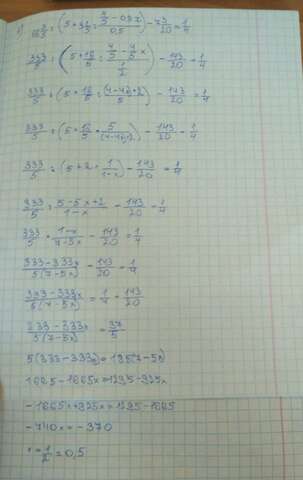 (5 + 3 1/5 : (4/5 - 0,8x)/0,5) - 7 3/20 = 1/4
333/5 : (5 + 16/5 : (4/5 - 4/5x)/(1/2)) - 143/20 = 1/4
333/5 : (5 + 16/5 : (4-4x)·2/5) - 143/20 = 1/4
333/5 : (5 + 16/5 · 5/((4-4x)·2)) - 143/20 = 1/4
333/5 : (5 + 2 · 1/(1-x)) - 143/20 = 1/4
333/5 : (5-5x+2)/(1-x) - 143/20 = 1/4
333/5 · (1-x)/(7-5x) - 143/20 = 1/4
(333-333x)/(5(7-5x)) - 143/20 = 1/4
(333-333x)/(5(7-5x)) = 1/4 + 143/20
(333-333x)/(5(7-5x)) = 37/5
5(333-333x) = 185(7-5x)
1665 - 1665x = 1295 - 925x
-1665x + 925x = 1295 - 1665
-740x = -370
x = 1/2 = 0,5